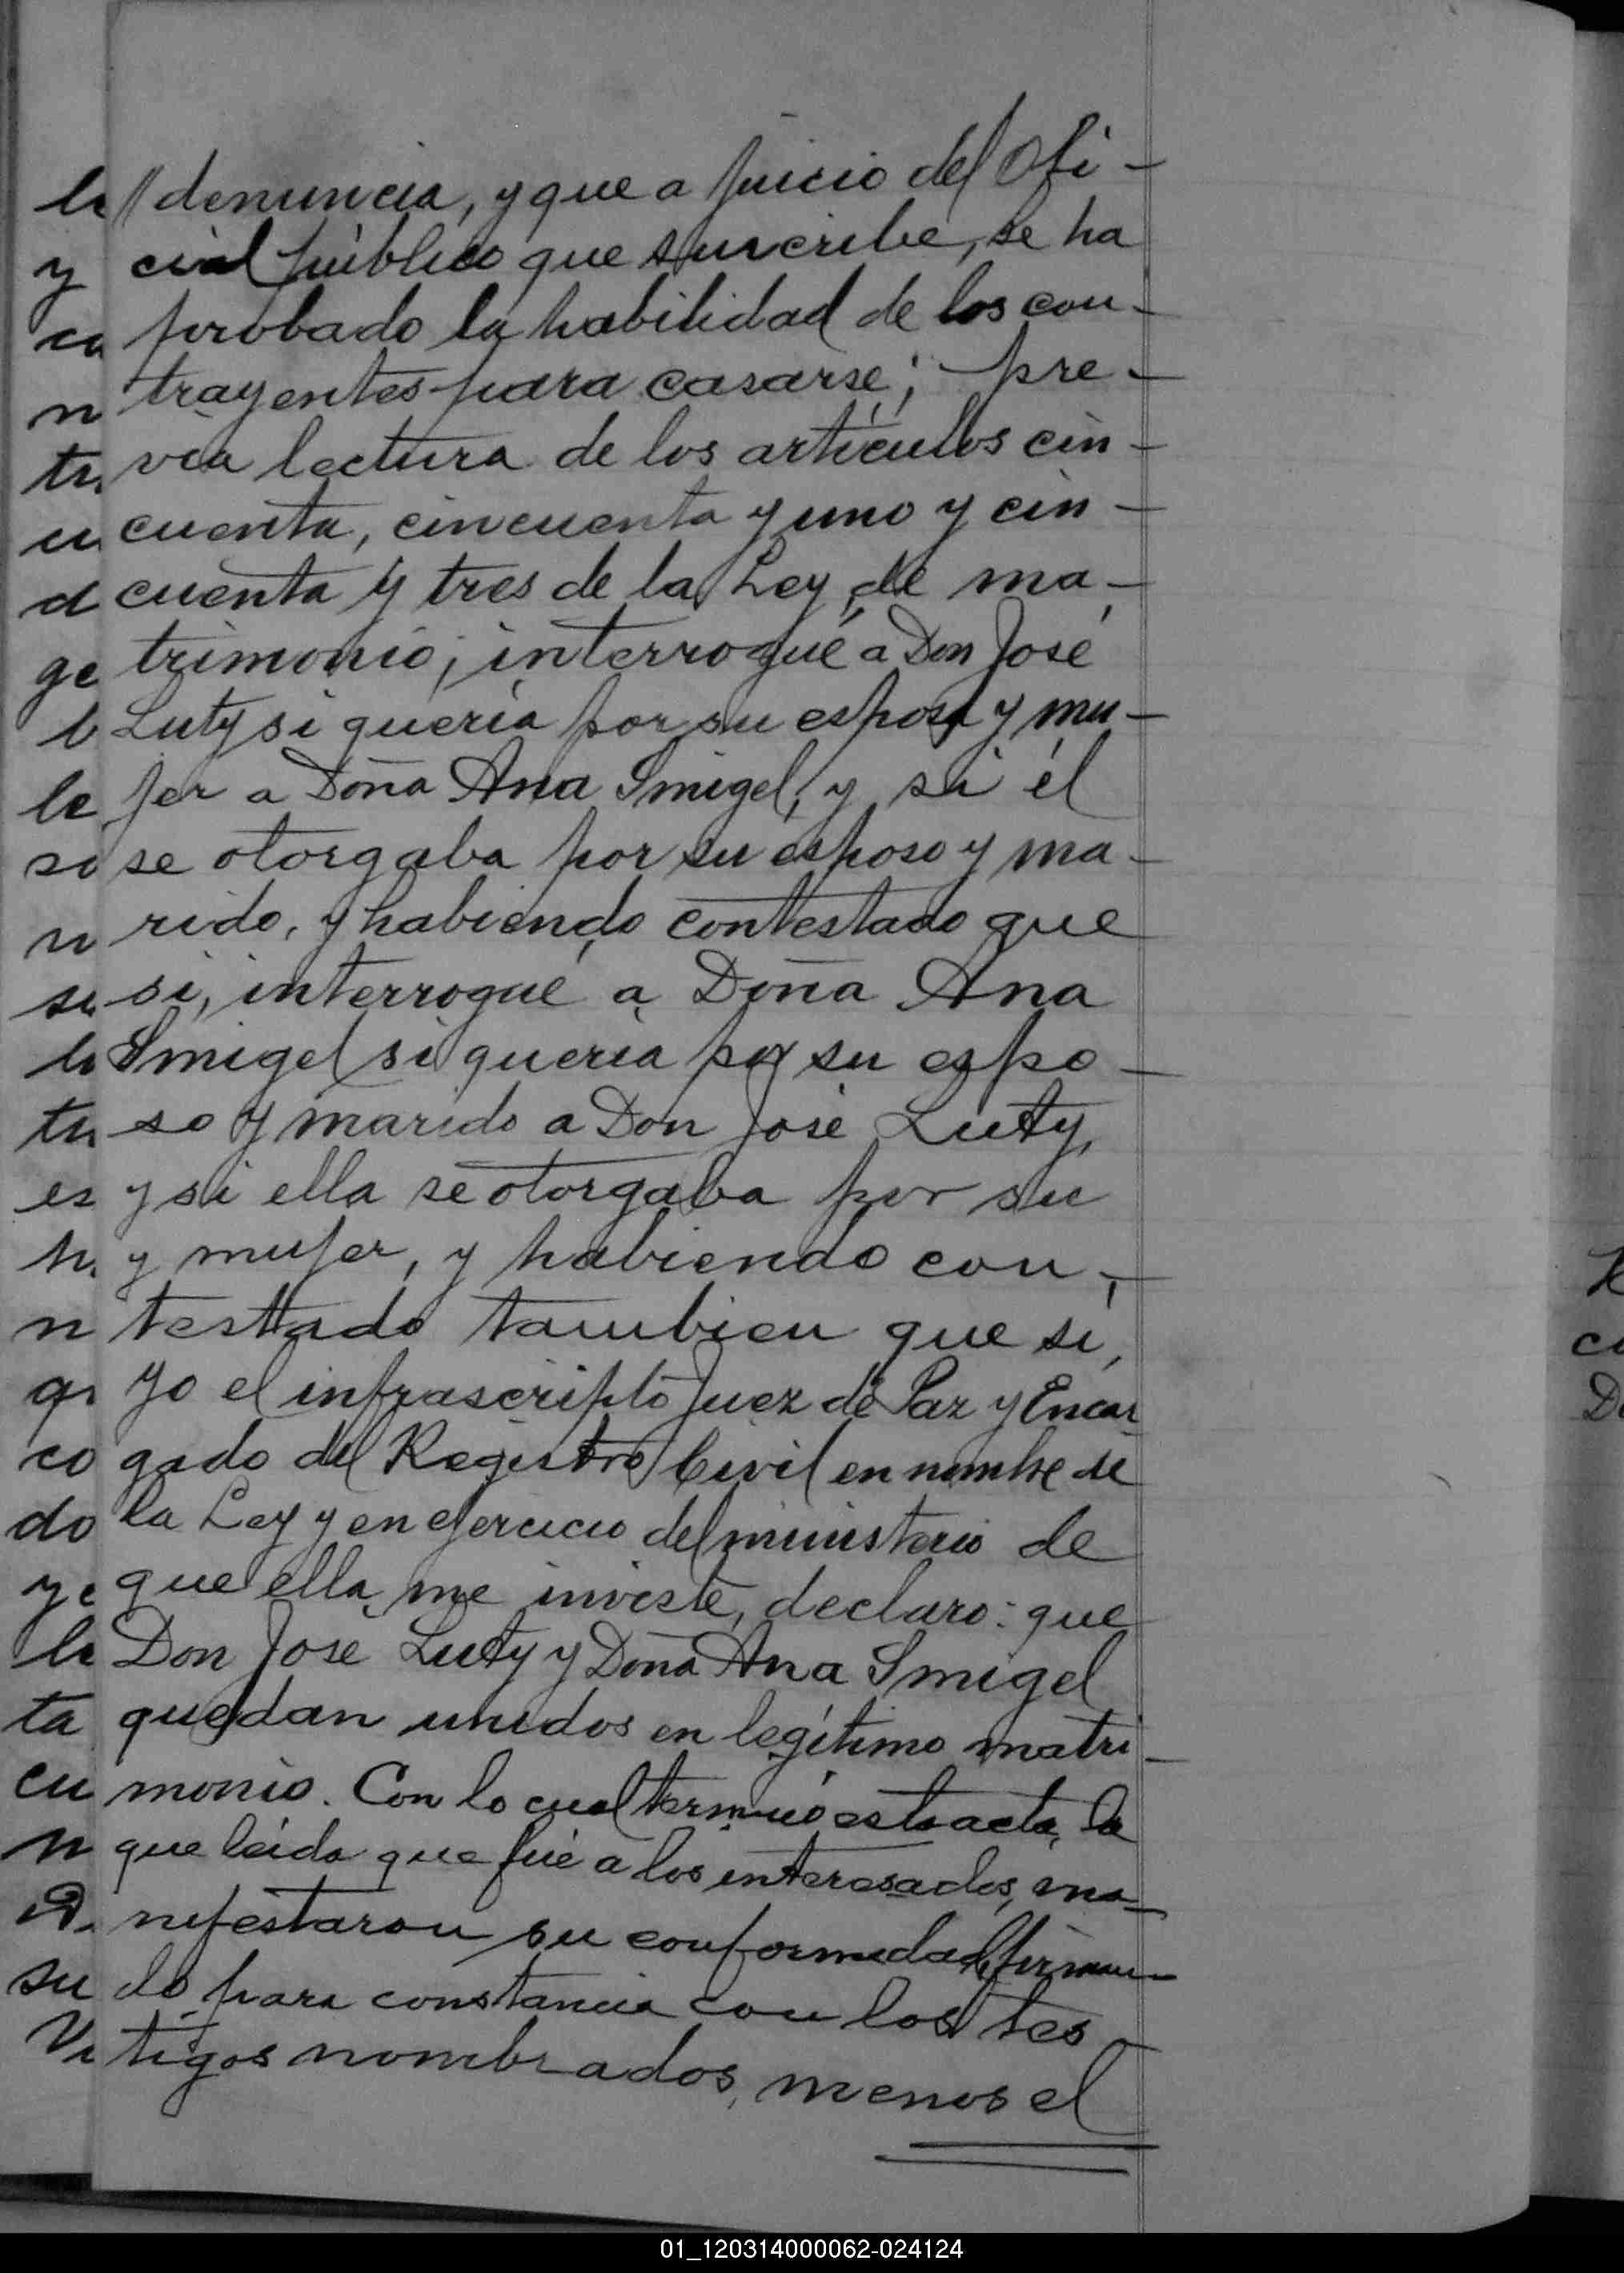 // denuncia, y que a juicio del Ofi-
cial público que suscribe, se ha
probado la habilidad de los con-
trayentes para casarse; pre-
via lectura de los artículos cin-
cuenta, cincuenta y uno y cin-
cuenta y tres de la Ley de ma-
trimonio; interrogué a Don José
Luty si quería por su esposa y mu-
jer a Doña Ana Smigel, y si él
se otorgaba por su esposo y ma-
rido, y habiendo contestado que
si, interrogué a Doña Ana
Smigel si quería por su espo-
so y marido a Don José Luty,
y si ella se otorgaba por su
y mujer, y habiendo con-
testado tambien que sí,
Yo el infrascripto Juez de Paz y Encar-
gado del Registro Civil en nombre de
la Ley y en ejercicio del ministerio de
que ella me inviste, declaro: que
Don José Luty y Doña Ana Smigel
quedan unidos en legítimo matri-
monio. Con lo cual terminó esta acta, la
que leida que fué a los interesados, ma-
nifestaron su conformidad, firman-
do para constancia con los tes-
tigos nombrados, menos el
01_120314000062-024124